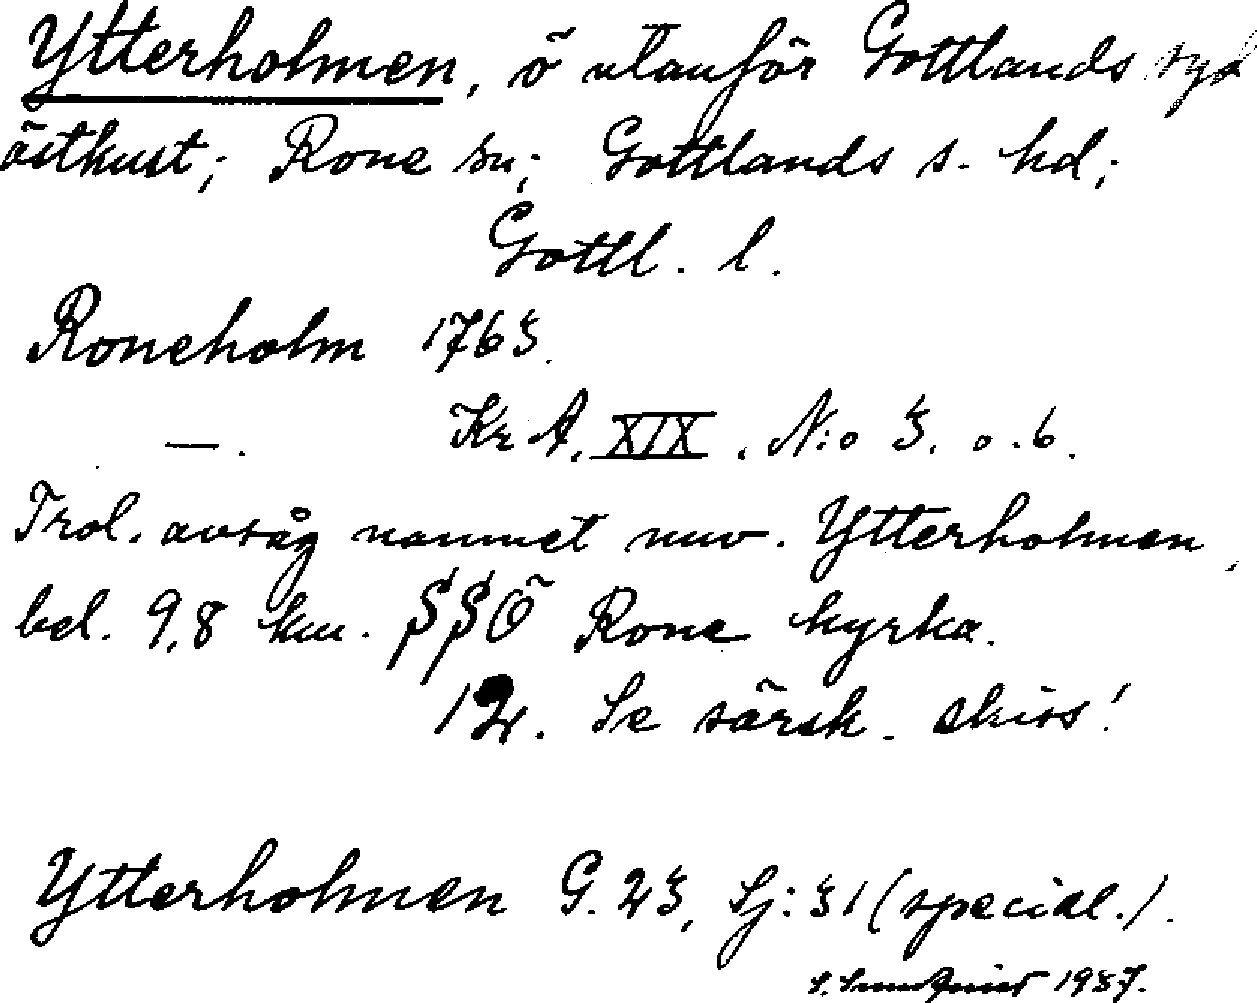 Ytterholmen, ö utanför Gottlands syd
östkust; Rone sn; Gottlands s. hd;
Gottl. l.
Roneholm 1765.
—. Kr A. XIX. N:o 5. o. 6.
Trol. avsåg namnet nuv. Ytterholmen,
bel. 9,8 km. SSÖ Rone kyrka.
12. Se särsk. skiss!
Ytterholmen G. 25, Sj: 51 (special.).
1937.